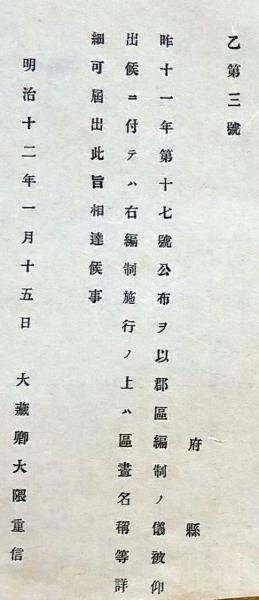 乙第三號
府縣
昨十一年第十七號公布ヲ以郡區編制ノ儀被仰
出候ニ付テハ右編制施行ノ上ハ區畫名稱等詳
細可屆出此旨相達候事
明治十二年一月十五日　大藏卿大隈重信